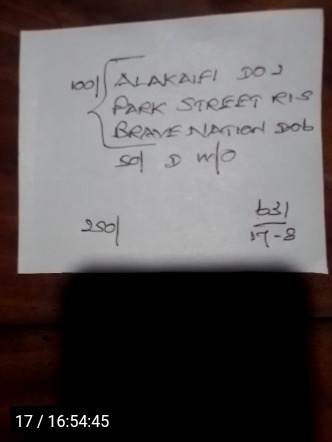 100/ ALAKAIFI DO2
PARK STREET R1S
BRAVE NATION DO6
50/ D m/o
250/
631
17-8
17 / 16:54:45